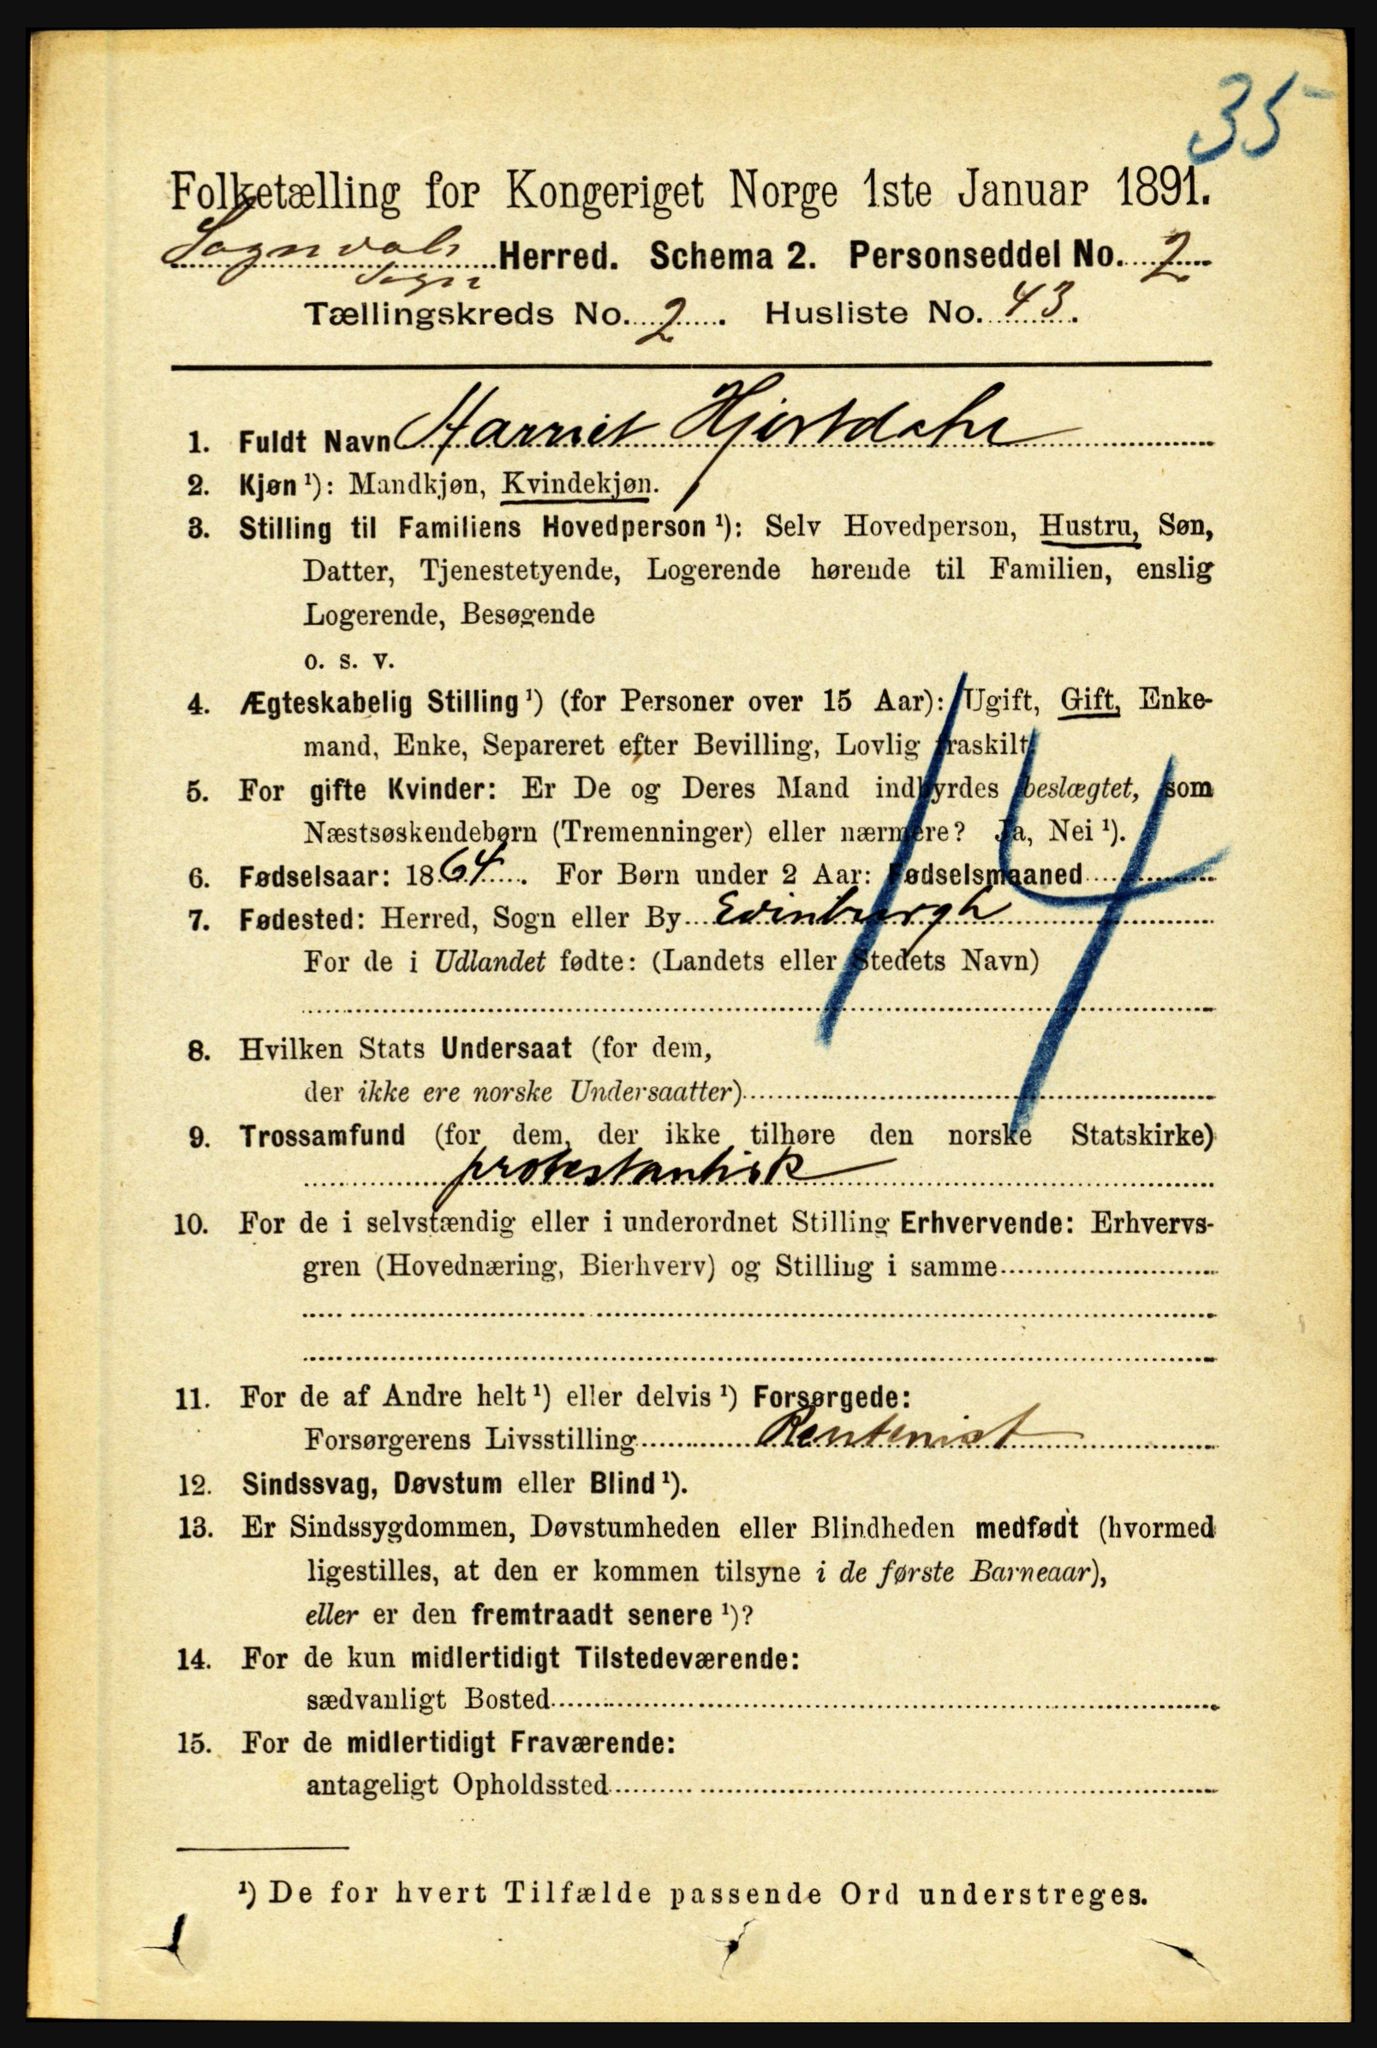 35
Folketælling for Kongeriget Norge 1ste Januar 1891.
Sogndals Herred. Schema 2. Personseddel No. 2
Sogn
Tællingskreds No. 2. Husliste No. 43.
1. Fuldt Navn Harriet Hjertdahl
2. Kjøn ¹): Mandkjøn, Kvindekjøn.
3. Stilling til Familiens Hovedperson ¹): Selv Hovedperson, Hustru, Søn,
Datter, Tjenestetyende, Logerende hørende til Familien, enslig
Logerende, Besøgende
o. s. v.
4. Ægteskabelig Stilling ¹) (for Personer over 15 Aar): Ugift, Gift, Enke-
mand, Enke, Separeret efter Bevilling, Lovlig fraskilt.
5. For gifte Kvinder: Er De og Deres Mand indbyrdes beslægtet, som
Næstsøskendebørn (Tremenninger) eller nærmere? Ja, Nei ¹).
6. Fødselsaar: 1864. For Børn under 2 Aar: Fødselsmaaned
7. Fødested: Herred, Sogn eller By Edinburgh
For de i Udlandet fødte: (Landets eller Stedets Navn)
14
8. Hvilken Stats Undersaat (for dem,
der ikke ere norske Undersaatter)
9. Trossamfund (for dem, der ikke tilhøre den norske Statskirke)
protestantisk
10. For de i selvstændig eller i underordnet Stilling Erhvervende: Erhvervs-
gren (Hovednæring, Bierhverv) og Stilling i samme
11. For de af Andre helt ¹) eller delvis ¹) Forsørgede:
Forsørgerens Livsstilling Rentenist
12. Sindssvag, Døvstum eller Blind ¹).
13. Er Sindssygdommen, Døvstumheden eller Blindheden medfødt (hvormed
ligestilles, at den er kommen tilsyne i de første Barneaar),
eller er den fremtraadt senere ¹)?
14. For de kun midlertidigt Tilstedeværende:
sædvanligt Bosted
15. For de midlertidigt Fraværende:
antageligt Opholdssted
¹) De for hvert Tilfælde passende Ord understreges.